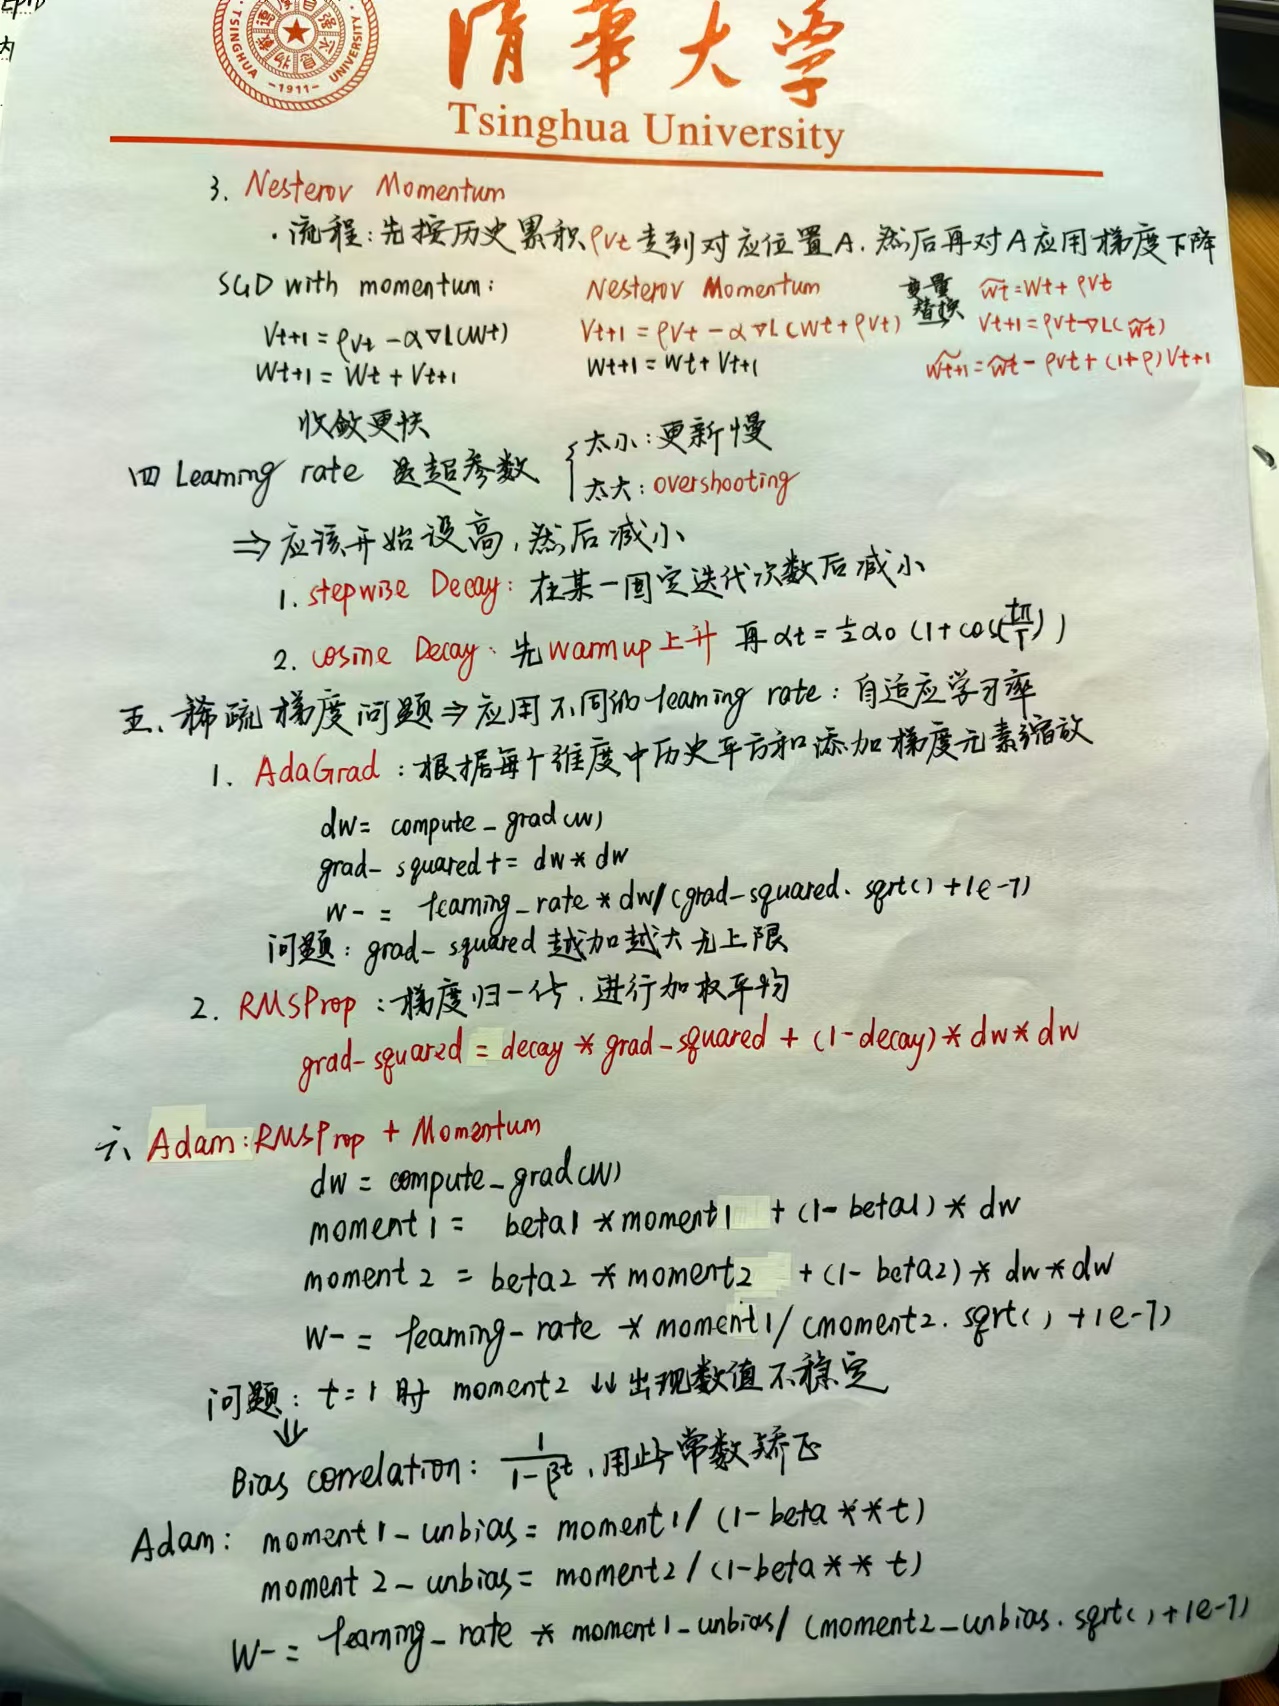 清华大学
Tsinghua University
TSINGHUA UNIVERSITY
-1911-
自强不息
内
3. Nesterov Momentum
·流程:先按历史累积ρvt走到对应位置A.然后再对A应用梯度下降
SGD with momentum: Nesterov Momentum 变量替换 w̃t=wt+ρvt
vt+1=ρvt-α∇L(wt) vt+1=ρvt-α∇L(wt+ρvt) vt+1=ρvt-∇L(w̃t)
wt+1=wt+vt+1 wt+1=wt+vt+1 w̃t+1=w̃t-ρvt+(1+ρ)vt+1
收敛更快
四 Learning rate 是超参数 { 太小:更新慢
太大:overshooting
⇒应该开始设高,然后减小
1. stepwise Decay:在某一固定迭代次数后减小
2. cosine Decay:先warmup上升 再αt=½α0(1+cos(tπ/T))
五、稀疏梯度问题⇒应用不同的learning rate:自适应学习率
1. AdaGrad:根据每个维度中历史平方和添加梯度元素缩放
dw= compute_grad(w)
grad-squared+=dw*dw
w-= learning_rate*dw/(grad-squared.sqrt()+1e-7)
问题:grad-squared越加越大无上限
2. RMSProp:梯度归一化.进行加权平均
grad-squared=decay*grad-squared+(1-decay)*dw*dw
六、Adam:RMSProp+Momentum
dw=compute_grad(w)
moment1= beta1*moment1 +(1-beta1)*dw
moment2=beta2*moment2 +(1-beta2)*dw*dw
w-= learning-rate*moment1/(moment2.sqrt()+1e-7)
问题:t=1时 moment2↓↓出现数值不稳定
⇓
Bias correlation: 1/(1-βᵗ),用此常数矫正
Adam: moment1-unbias=moment1/(1-beta**t)
moment2-unbias=moment2/(1-beta**t)
w-= learning_rate*moment1-unbias/(moment2-unbias.sqrt()+1e-7)